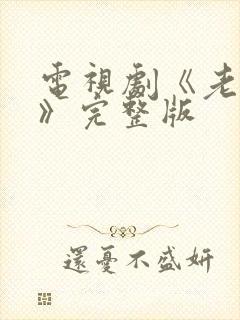 電視劇《老
》完整版
還憂不盛妍